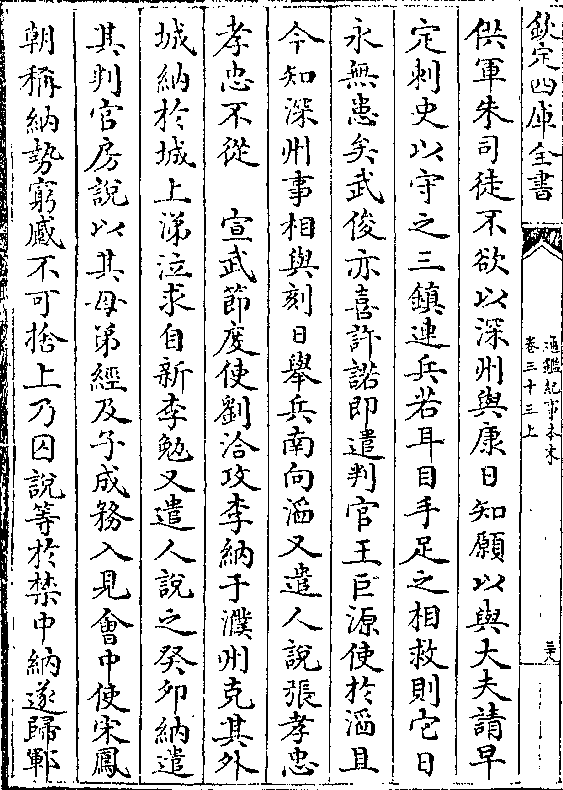 欽定四庫全書
通鑑紀事本末
卷三十三上
供軍朱司徒不欲以深州與康日知願以與大夫請早
定刺史以守之三鎮連兵若耳目手足之相救則它日
永無患矣武俊亦喜許諾即遣判官王巨源使於滔且
令知深州事相與刻日舉兵南向滔又遣人說張孝忠
孝忠不從　宣武節度使劉洽攻李納于濮州克其外
城納於城上涕泣求自新李勉又遣人說之癸卯納遣
其判官房說以其母弟經及子成務入見會中使宋鳳
朝稱納勢窮蹙不可捨上乃囚說等於禁中納遂歸鄆